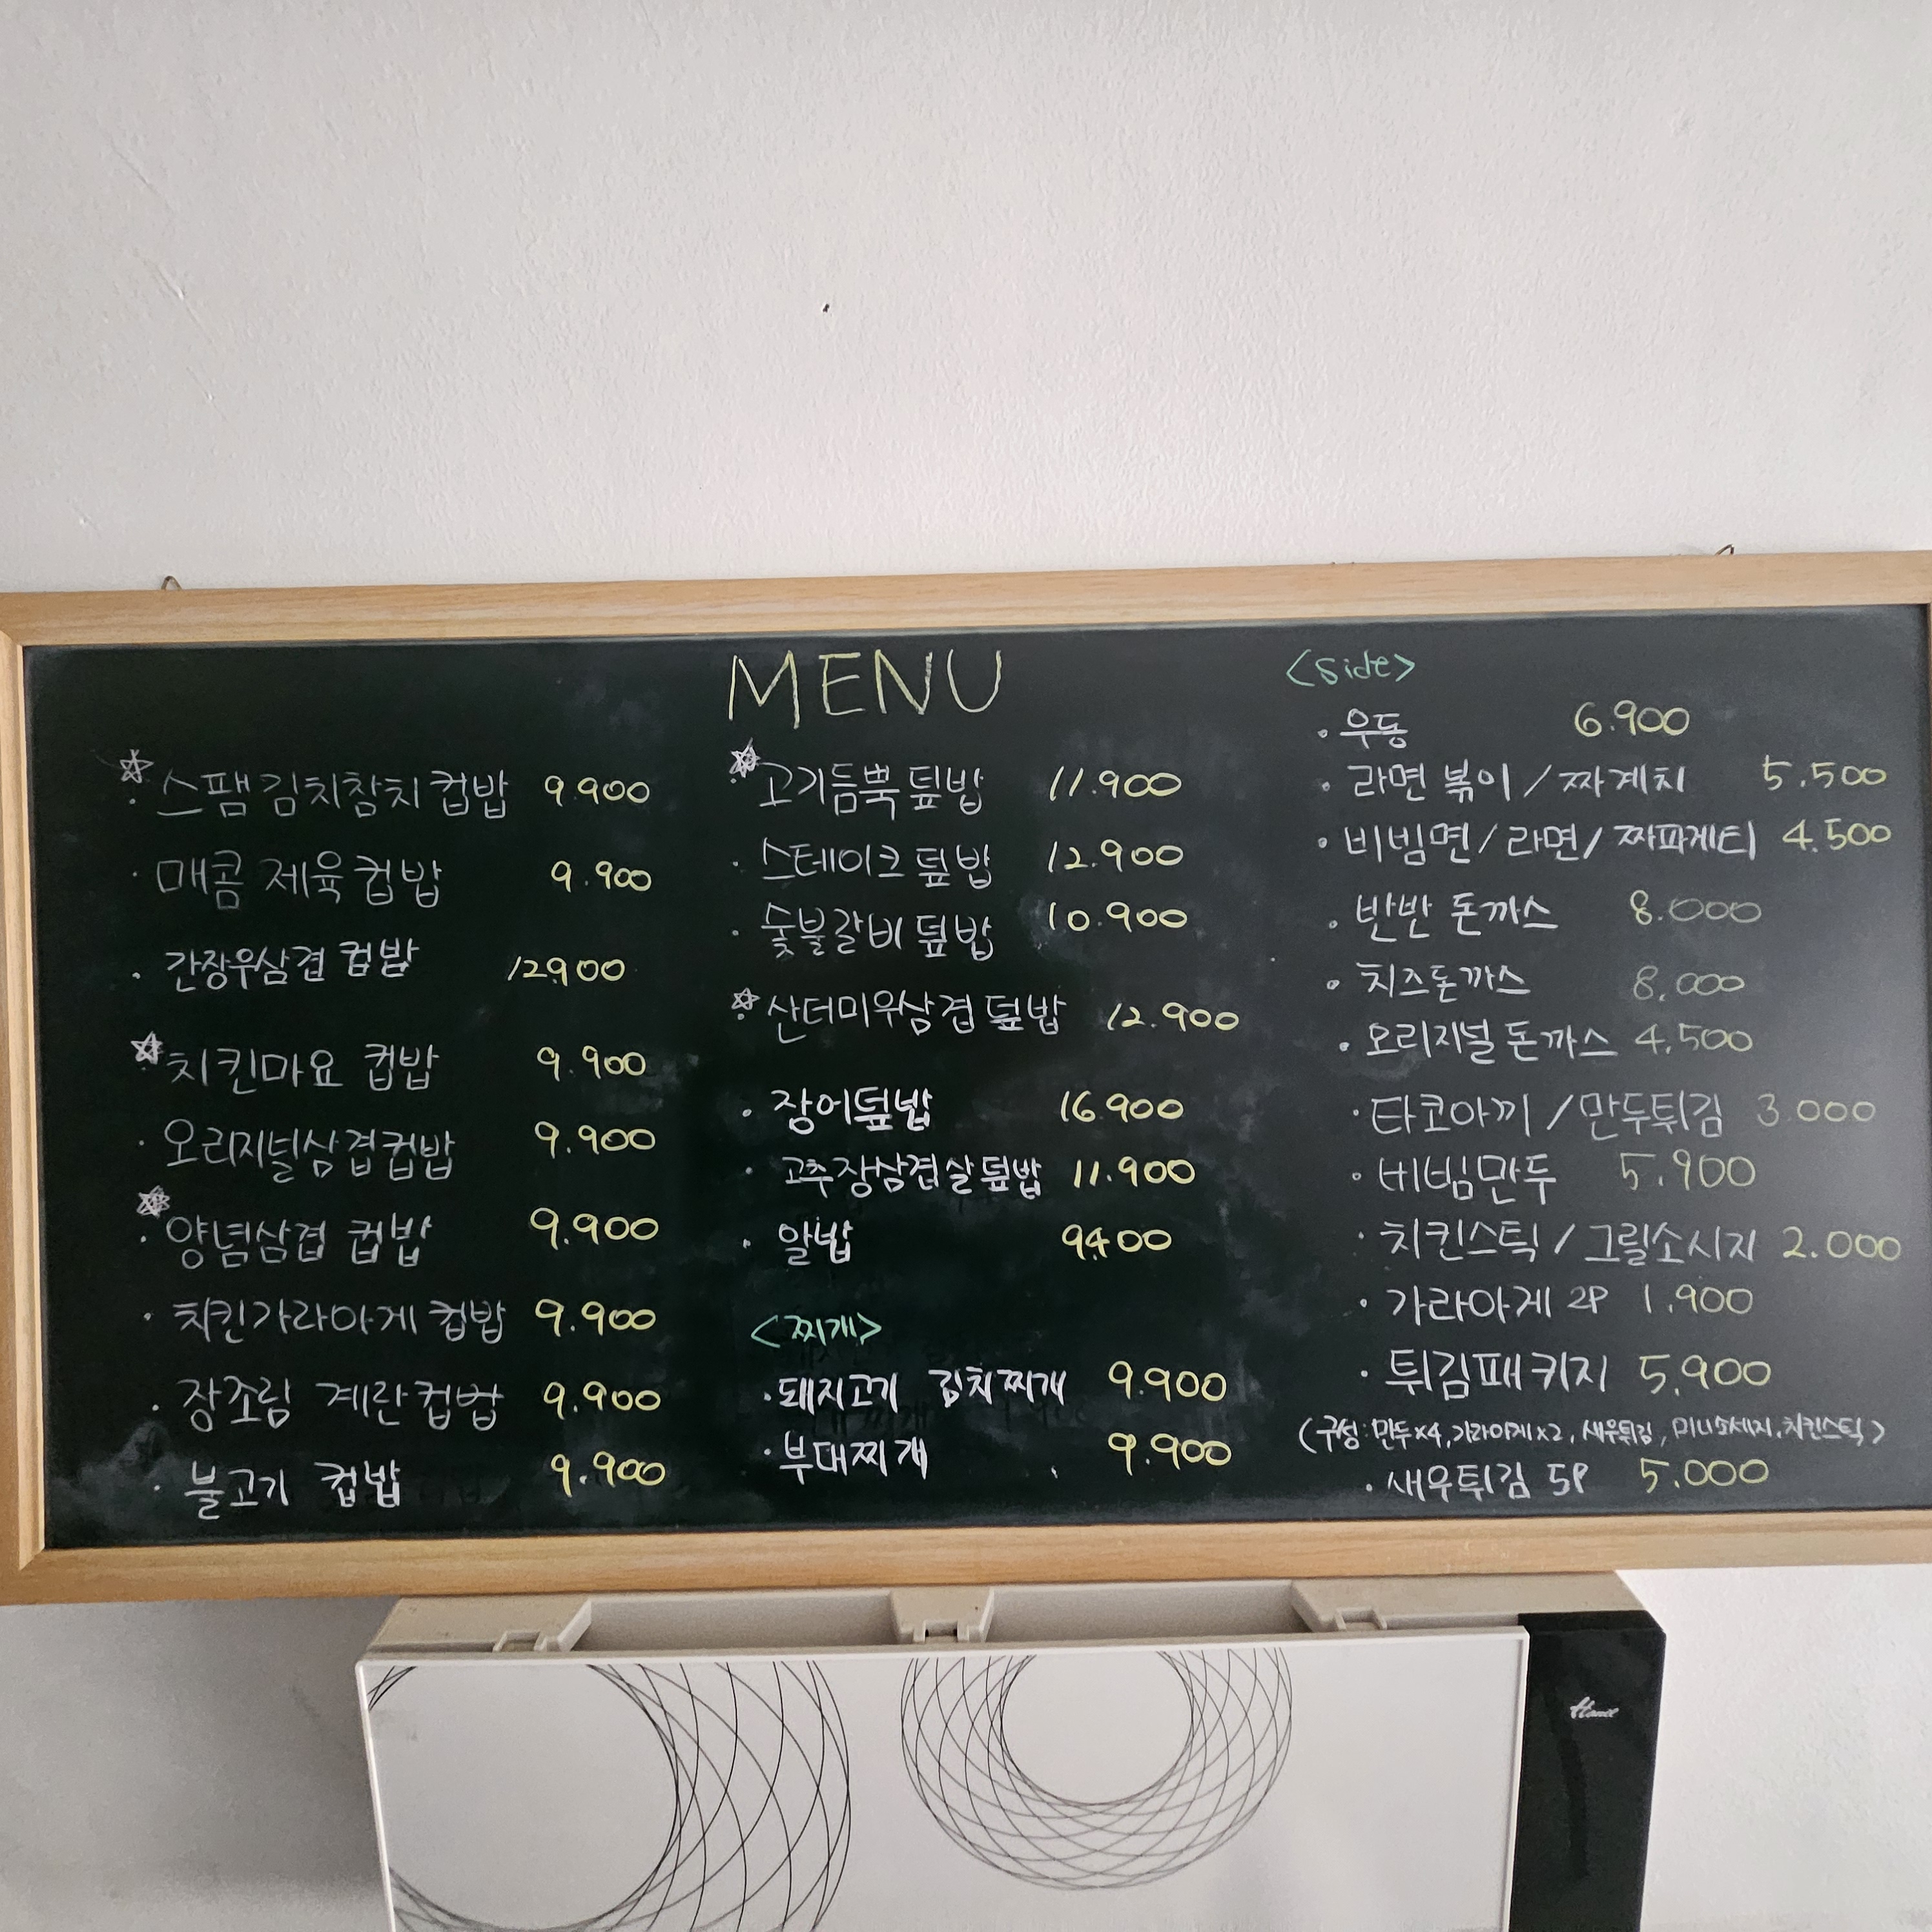 MENU
☆
· 스팸김치참치컵밥 9.900
· 매콤 제육컵밥 9.900
· 간장우삼겹 컵밥 12.900
☆
· 치킨마요 컵밥 9.900
· 오리지널삼겹컵밥 9.900
☆
· 양념삼겹 컵밥 9.900
· 치킨가라아게 컵밥 9.900
· 장조림 계란컵밥 9.900
· 불고기 컵밥 9.900
☆
· 고기듬뿍 덮밥 11.900
· 스테이크 덮밥 12.900
· 숯불갈비 덮밥 10.900
☆
· 산더미우삼겹 덮밥 12.900
· 장어덮밥 16.900
· 고추장삼겹살덮밥 11.900
· 알밥 9400
<찌개>
· 돼지고기 김치찌개 9.900
· 부대찌개 9.900
<side>
· 우동 6.900
· 라면 볶이 / 짜계치 5.500
· 비빔면/라면/짜파게티 4.500
· 반반 돈까스 8.000
· 치즈돈까스 8.000
· 오리지널 돈까스 4.500
· 타코야끼 / 만두튀김 3.000
· 비빔만두 5.900
· 치킨스틱 / 그릴소시지 2.000
· 가라아게 2P 1.900
· 튀김패키지 5.900
(구성: 만두x4, 가라아게x2, 새우튀김, 미니소세지, 치킨스틱)
· 새우튀김 5P 5.000